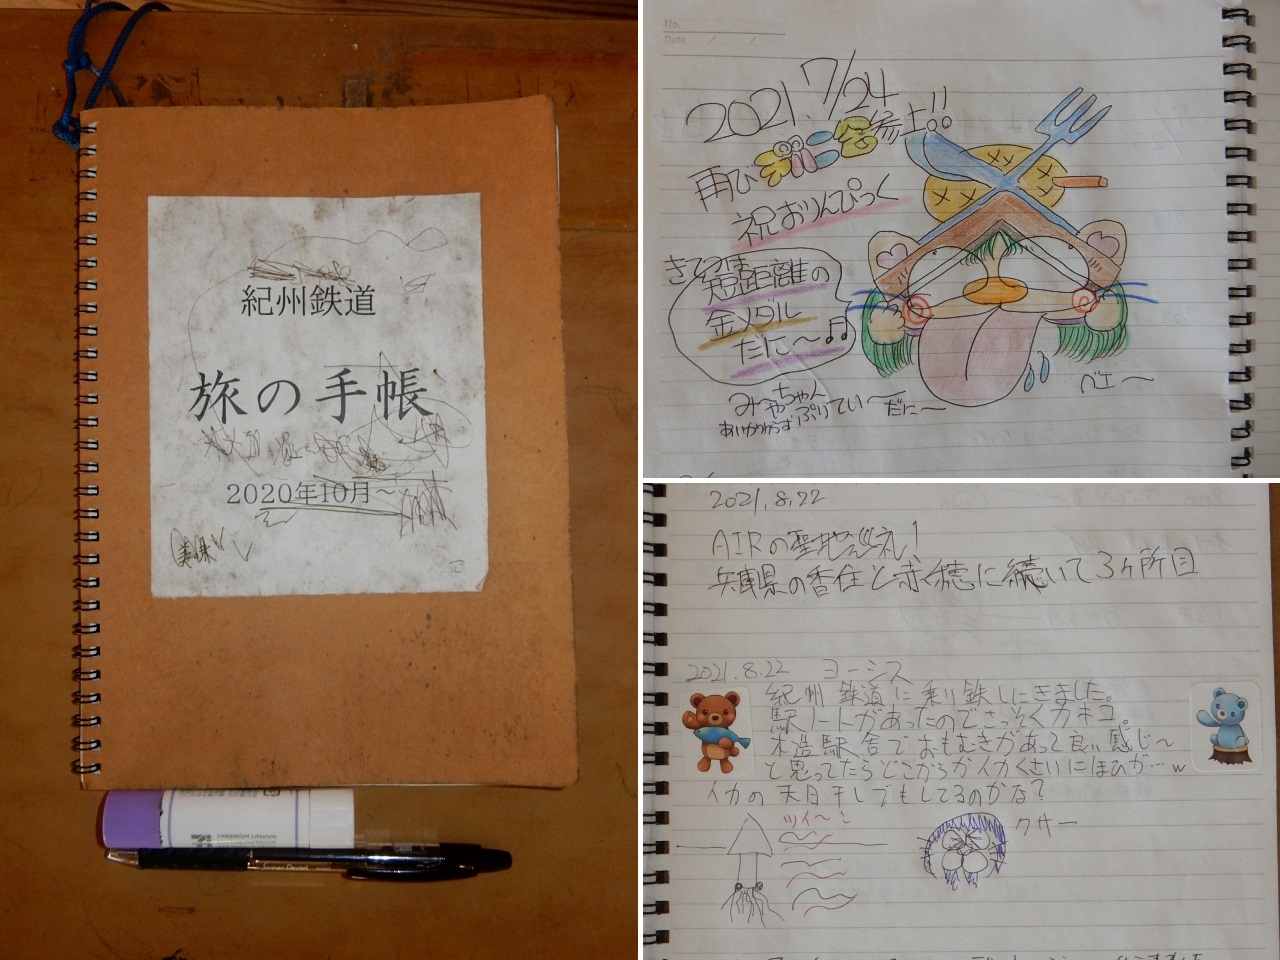 紀州鉄道
旅の手帳
2020年10月~
PREMIUM Lifestyle
No.
Date / /
2021.7/24
再び 参上!!
祝おりんぴっく
きてつは
短距離の
金メダル
だに~♫
みーちゃん
あいかわらず ぷりてぃ~だに~
ベエ~
2021.8.22
AIRの聖地巡礼!
兵庫県の香住と赤穂に続いて3ヶ所目
2021.8.22 ヨーシス
紀州鉄道に乗り鉄しにきました。
駅ノートがあったのでさっそくカキコ。
木造駅舎でおもむきがあって良い感じ~
と思ってたらどこからかイカくさいにほひが…w
イカの天日干しでもしてるのかな?
ツイ~:
クサー